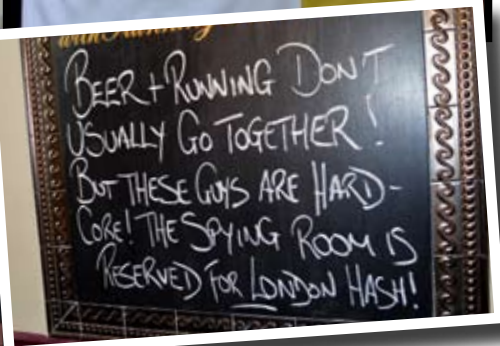 BEER + RUNNING DON'T
USUALLY GO TOGETHER!
BUT THESE GUYS ARE HARD-
CORE! THE SPYING ROOM IS
RESERVED FOR LONDON HASH!